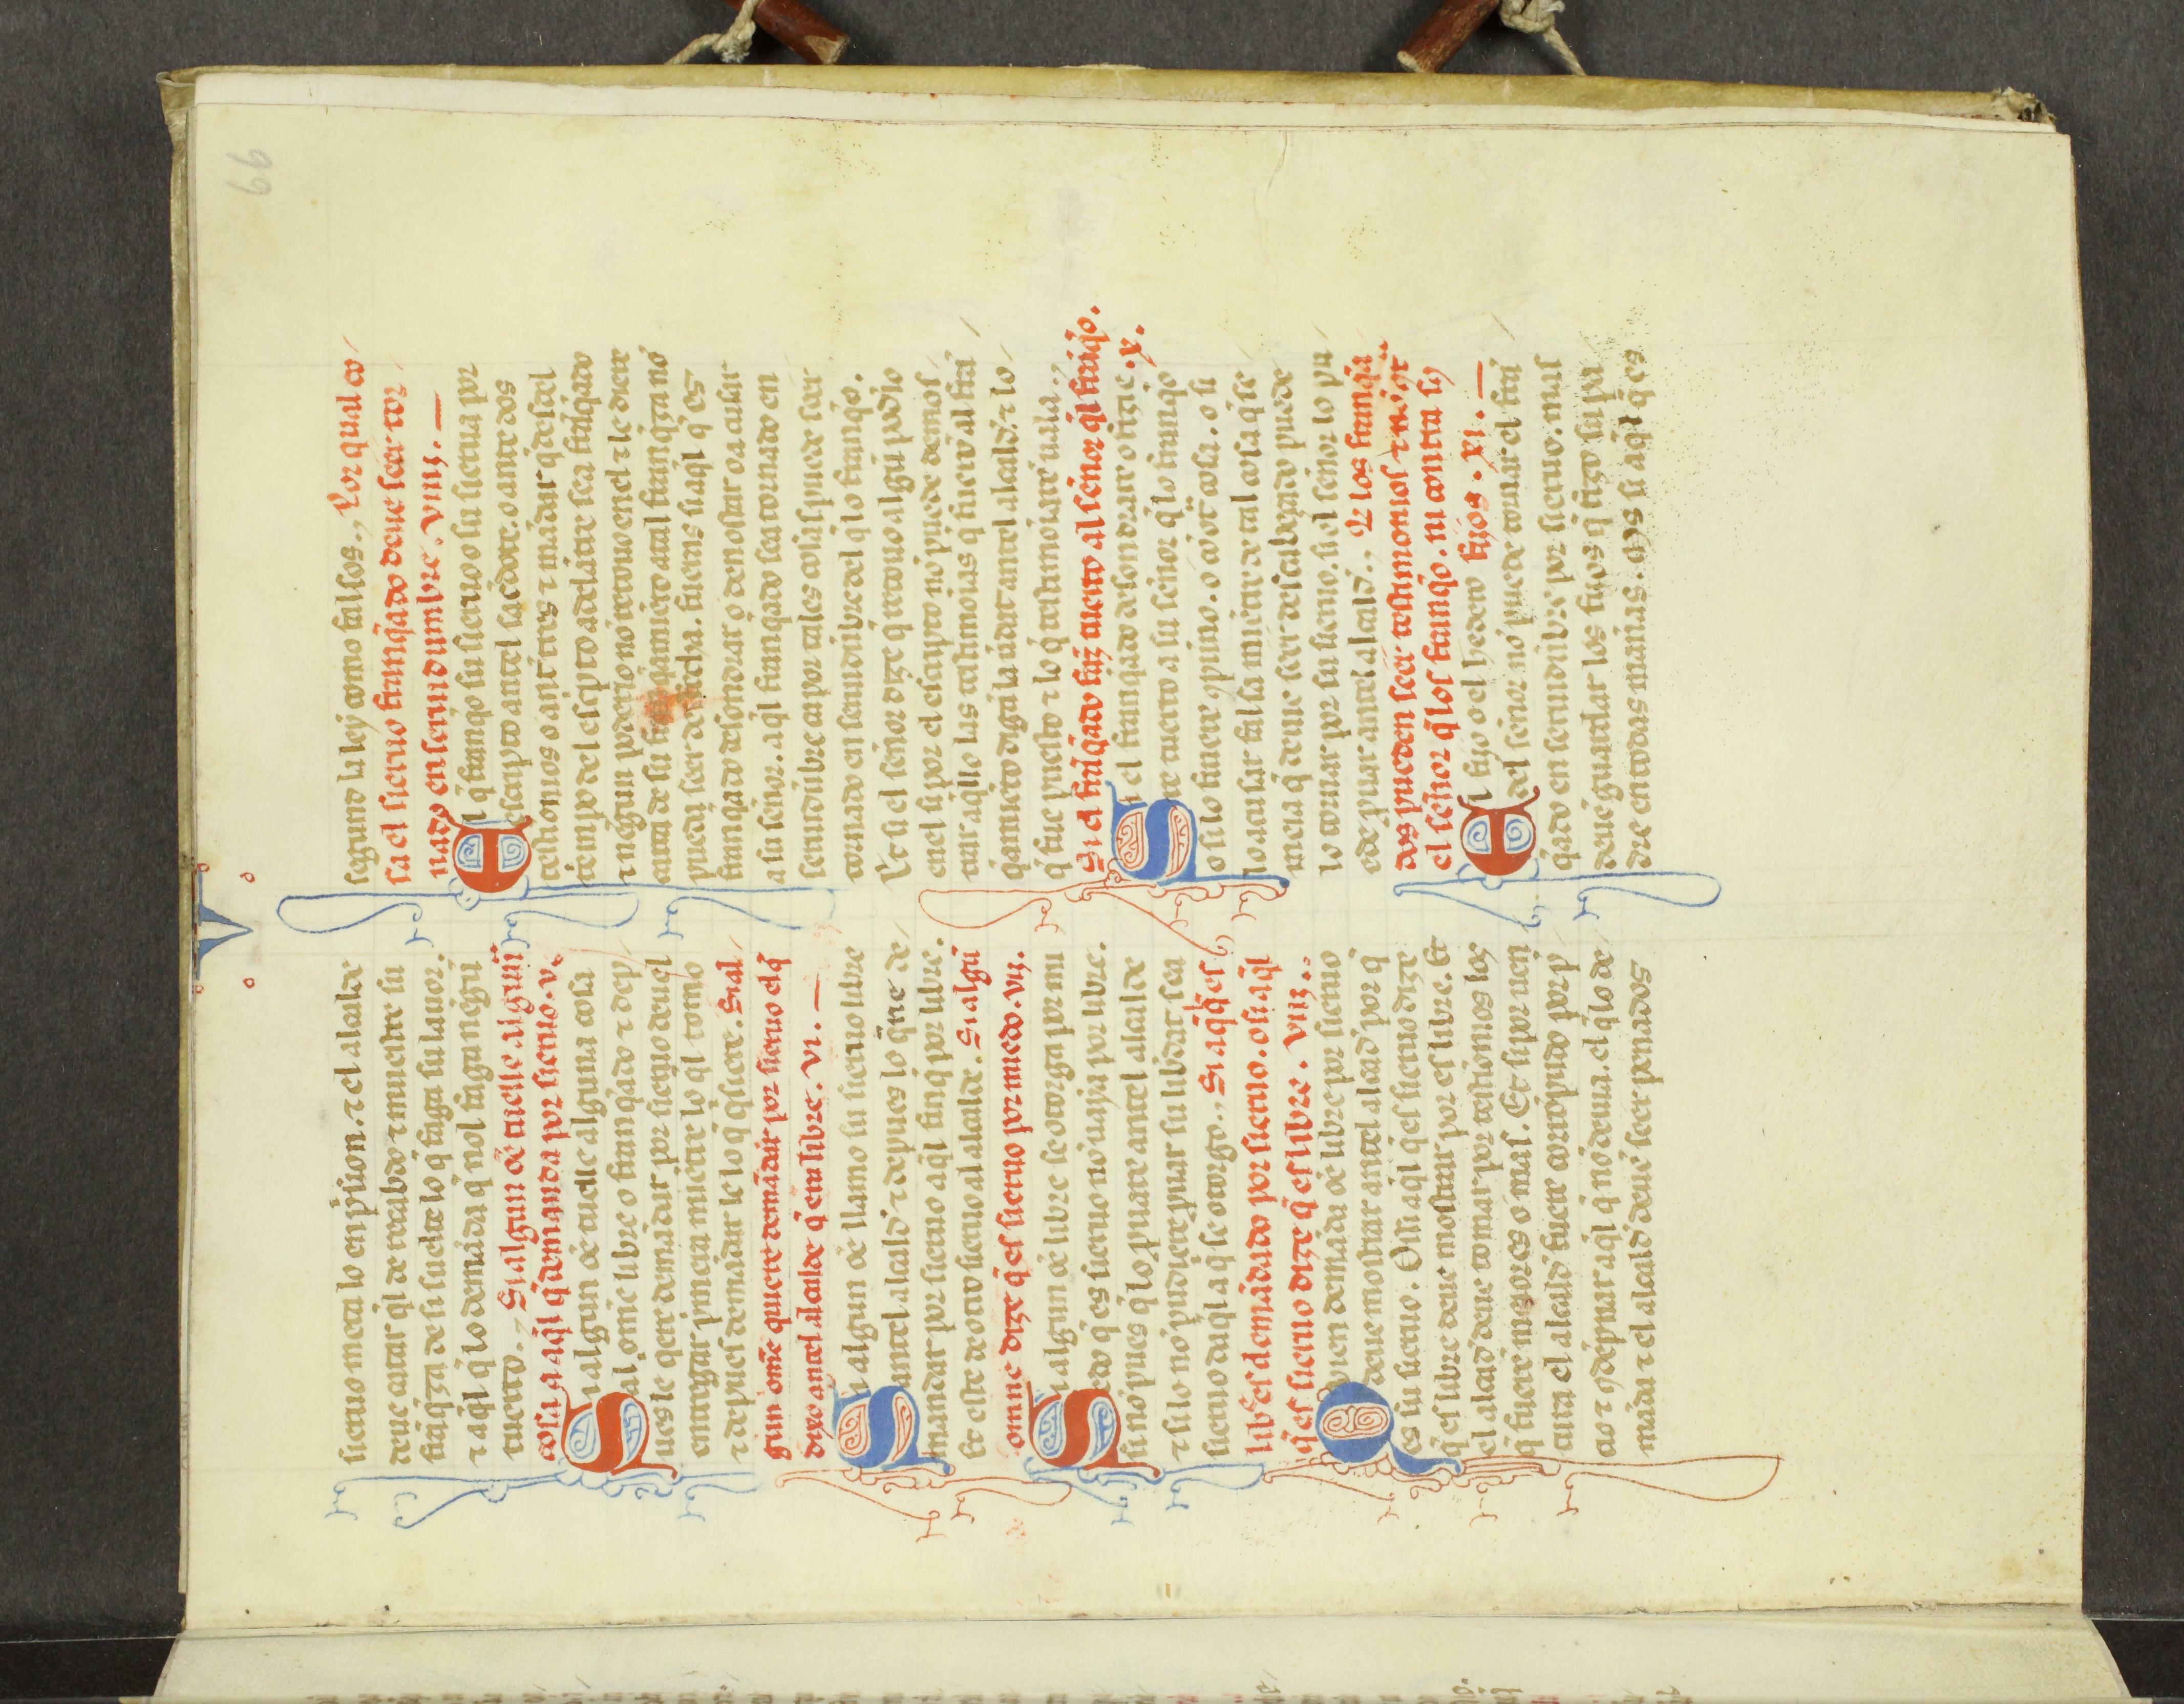 99
sieruo meta lo en p̃sion. ⁊ el alalde
deue catar q̃l de recabdo ⁊ muestre su
frãq̃za de si suelte lo q̃ faga su lauor.
⁊ aq̃l q̃ lo demãda q̃ nol faga nĩgũ
tuerto., Si algun oẽ tuelle a algunã
cosa a aq̃l q̃ demanda por sieruo. v.
Si algun oẽ tuelle alguna cosa
al omẽ libre o franq̃ado ⁊ dep
ues le q̃ere demãdar por sieruo deuel
entregar p̃mera miẽtre lo q̃l tomo
⁊ depues demãdar le lo q̃ q̃siere. Si al
gun om̃e quiere demãdar por sieruo el q̃
dixo antel alcalde q̃ era libre. vi.
Si algun oẽ llamo su sieruo libre
antel alcald̃ ⁊ depues lo q̃ne de
mandar por sieruo aq̃l finq̃ por libre.
Et este de otro sieruo al alcalde. Si algũ
omne dize q̃ es sieruo por miedo. vij.
Si algun oẽ libre se otorga por mi
edo q̃ es sieruo nõ uaya por libre.
si nõ pues q̃ lo prouare antel alcalde
⁊ si lo nõ pudiere prouar su lib̃dat sea
sieruo daq̃l a q̃ se otorgo., Si aq̃l q̃ es
lib̃ es demãdado por sieruo. o si aq̃l
q̃ es sieruo dize q̃ es libre. viij.
Quien demãda oẽ libre por sieruo
deue mostrar antel alcad̃ por q̃
es su sieruo. O si aq̃l q̃ es sieruo dize
q̃ es libre deue mostrar por es libre. Et
el alcad̃ deue tomar por testiõnos los
q̃ fuerẽ meiores o mas. Et si por uen
tura el alcald̃ fuere corrõpudo por p̃
cio ⁊ 9dẽpnar aq̃l q̃ nõ deuia. el q̃ lo de
mãda ⁊ el alcald̃ deuẽ seer penados
segund la ley como falsos., Por qual co
sa el sieruo franq̃ado deue seer tor
nado en seruidumbre. viiij.
El q̃ franq̃o su sieruo o su sierua por
escripto antel sac̃dote. o ante dos
testiõnos o ant̃ tres ⁊ mãdar q̃ desdel
tiempo del esc̃pto adelãtre sea frãq̃ado
⁊ nẽgun poderio nõ retouo en el ⁊ le diere
carta de su franq̃amiẽto atal franq̃za nõ
puedã seer desfecha. fueras si aq̃l q̃ es
franq̃ado desondrar o denostar o acusar
a su señor. aq̃l franq̃ado sea tornado en
seruidũbre ca por tales cosas puede seer
tornado en seruidũbre del q̃ lo franq̃o.
Et si el señor dize q̃ retouo algũ pod̃io
en el si por el escripto nõ puede demos
trar aq̃llo las testimoĩas q̃ fuerõ al frã
q̃amiẽto digã la ũdat antel alcald̃. ⁊ lo
q̃ fue puesto ⁊ lo q̃ testimoĩarẽ uala.,
Si el frãq̃ado faz tuerto al señor q̃l frãq̃o.
.x.
Si el franq̃ado desondrare o fizie
re tuerto a su señor q̃ lo franq̃o
o si lo firiere 9 puño. o cõ ot̃ cosa. o si
lo acusar falsa miẽtre de tal cosa q̃ se
mera q̃ deuie seer descabeçado puede
lo tornar por su sieruo. si el señor lo pu
ede puar antel alcald̃., Q̃ los franq̃a
dos pueden seer testimonios ⁊ nõ ot̃
el señor q̃ los franq̃o. ni contra sus
fijos. xi.
El fijo o el hedero
del señor nõ puede tornar el frã
q̃ado en seruidũbre por sieruo. mas
deuẽ guardar los fijos q̃ fizo su pa
dre en todas mañas. Mas si aq̃l q̃ es